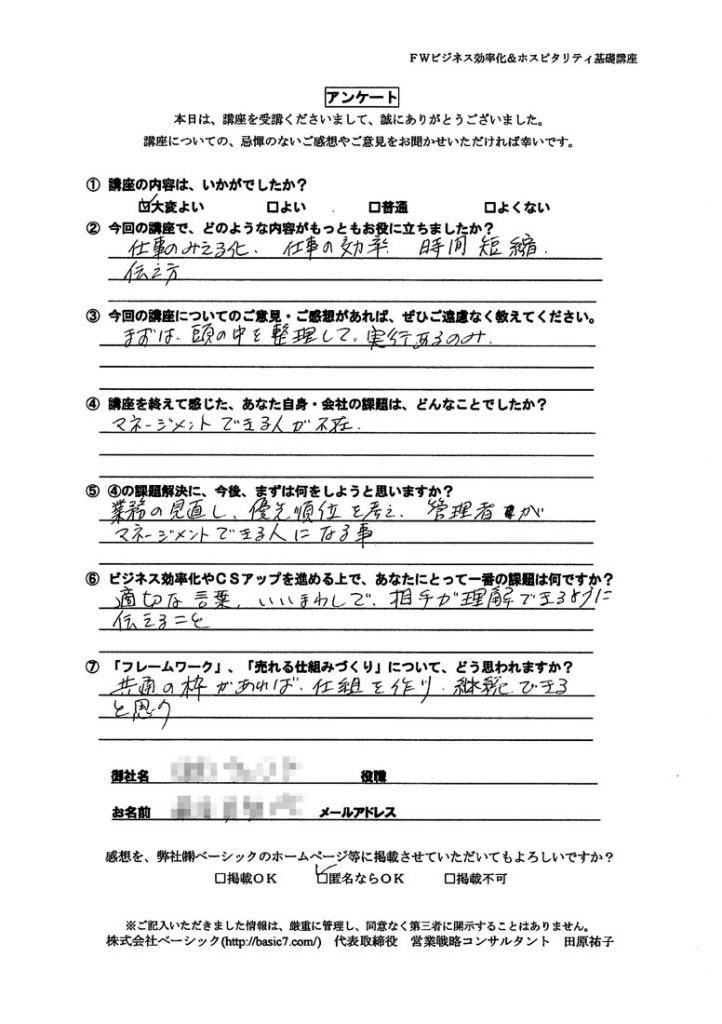 FWビジネス効率化&ホスピタリティ基礎講座
アンケート
本日は、講座を受講くださいまして、誠にありがとうございました。
講座についての、忌憚のないご感想やご意見をお聞かせいただければ幸いです。
① 講座の内容は、いかがでしたか?
☑大変よい □よい □普通 □よくない
② 今回の講座で、どのような内容がもっともお役に立ちましたか?
仕事のみえる化. 仕事の効率. 時間短縮.
伝え方
③ 今回の講座についてのご意見・ご感想があれば、ぜひご遠慮なく教えてください。
まずは、頭の中を整理して、実行あるのみ.
④ 講座を終えて感じた、あなた自身・会社の課題は、どんなことでしたか?
マネージメントできる人が不在.
⑤ ④の課題解決に、今後、まずは何をしようと思いますか?
業務の見直し、優先順位を考え、管理者が
マネージメントできる人になる事
⑥ ビジネス効率化やCSアップを進める上で、あなたにとって一番の課題は何ですか?
適切な言葉、いいまわしで、相手が理解できるように
伝えること
⑦ 「フレームワーク」、「売れる仕組みづくり」について、どう思われますか?
共通の枠があれば、仕組を作り、継続できる
と思う
御社名 役職
お名前 メールアドレス
感想を、弊社㈱ベーシックのホームページ等に掲載させていただいてもよろしいですか?
□掲載OK ☑匿名ならOK □掲載不可
※ご記入いただきました情報は、厳重に管理し、同意なく第三者に開示することはありません。
株式会社ベーシック(http://basic7.com/) 代表取締役 営業戦略コンサルタント 田原祐子